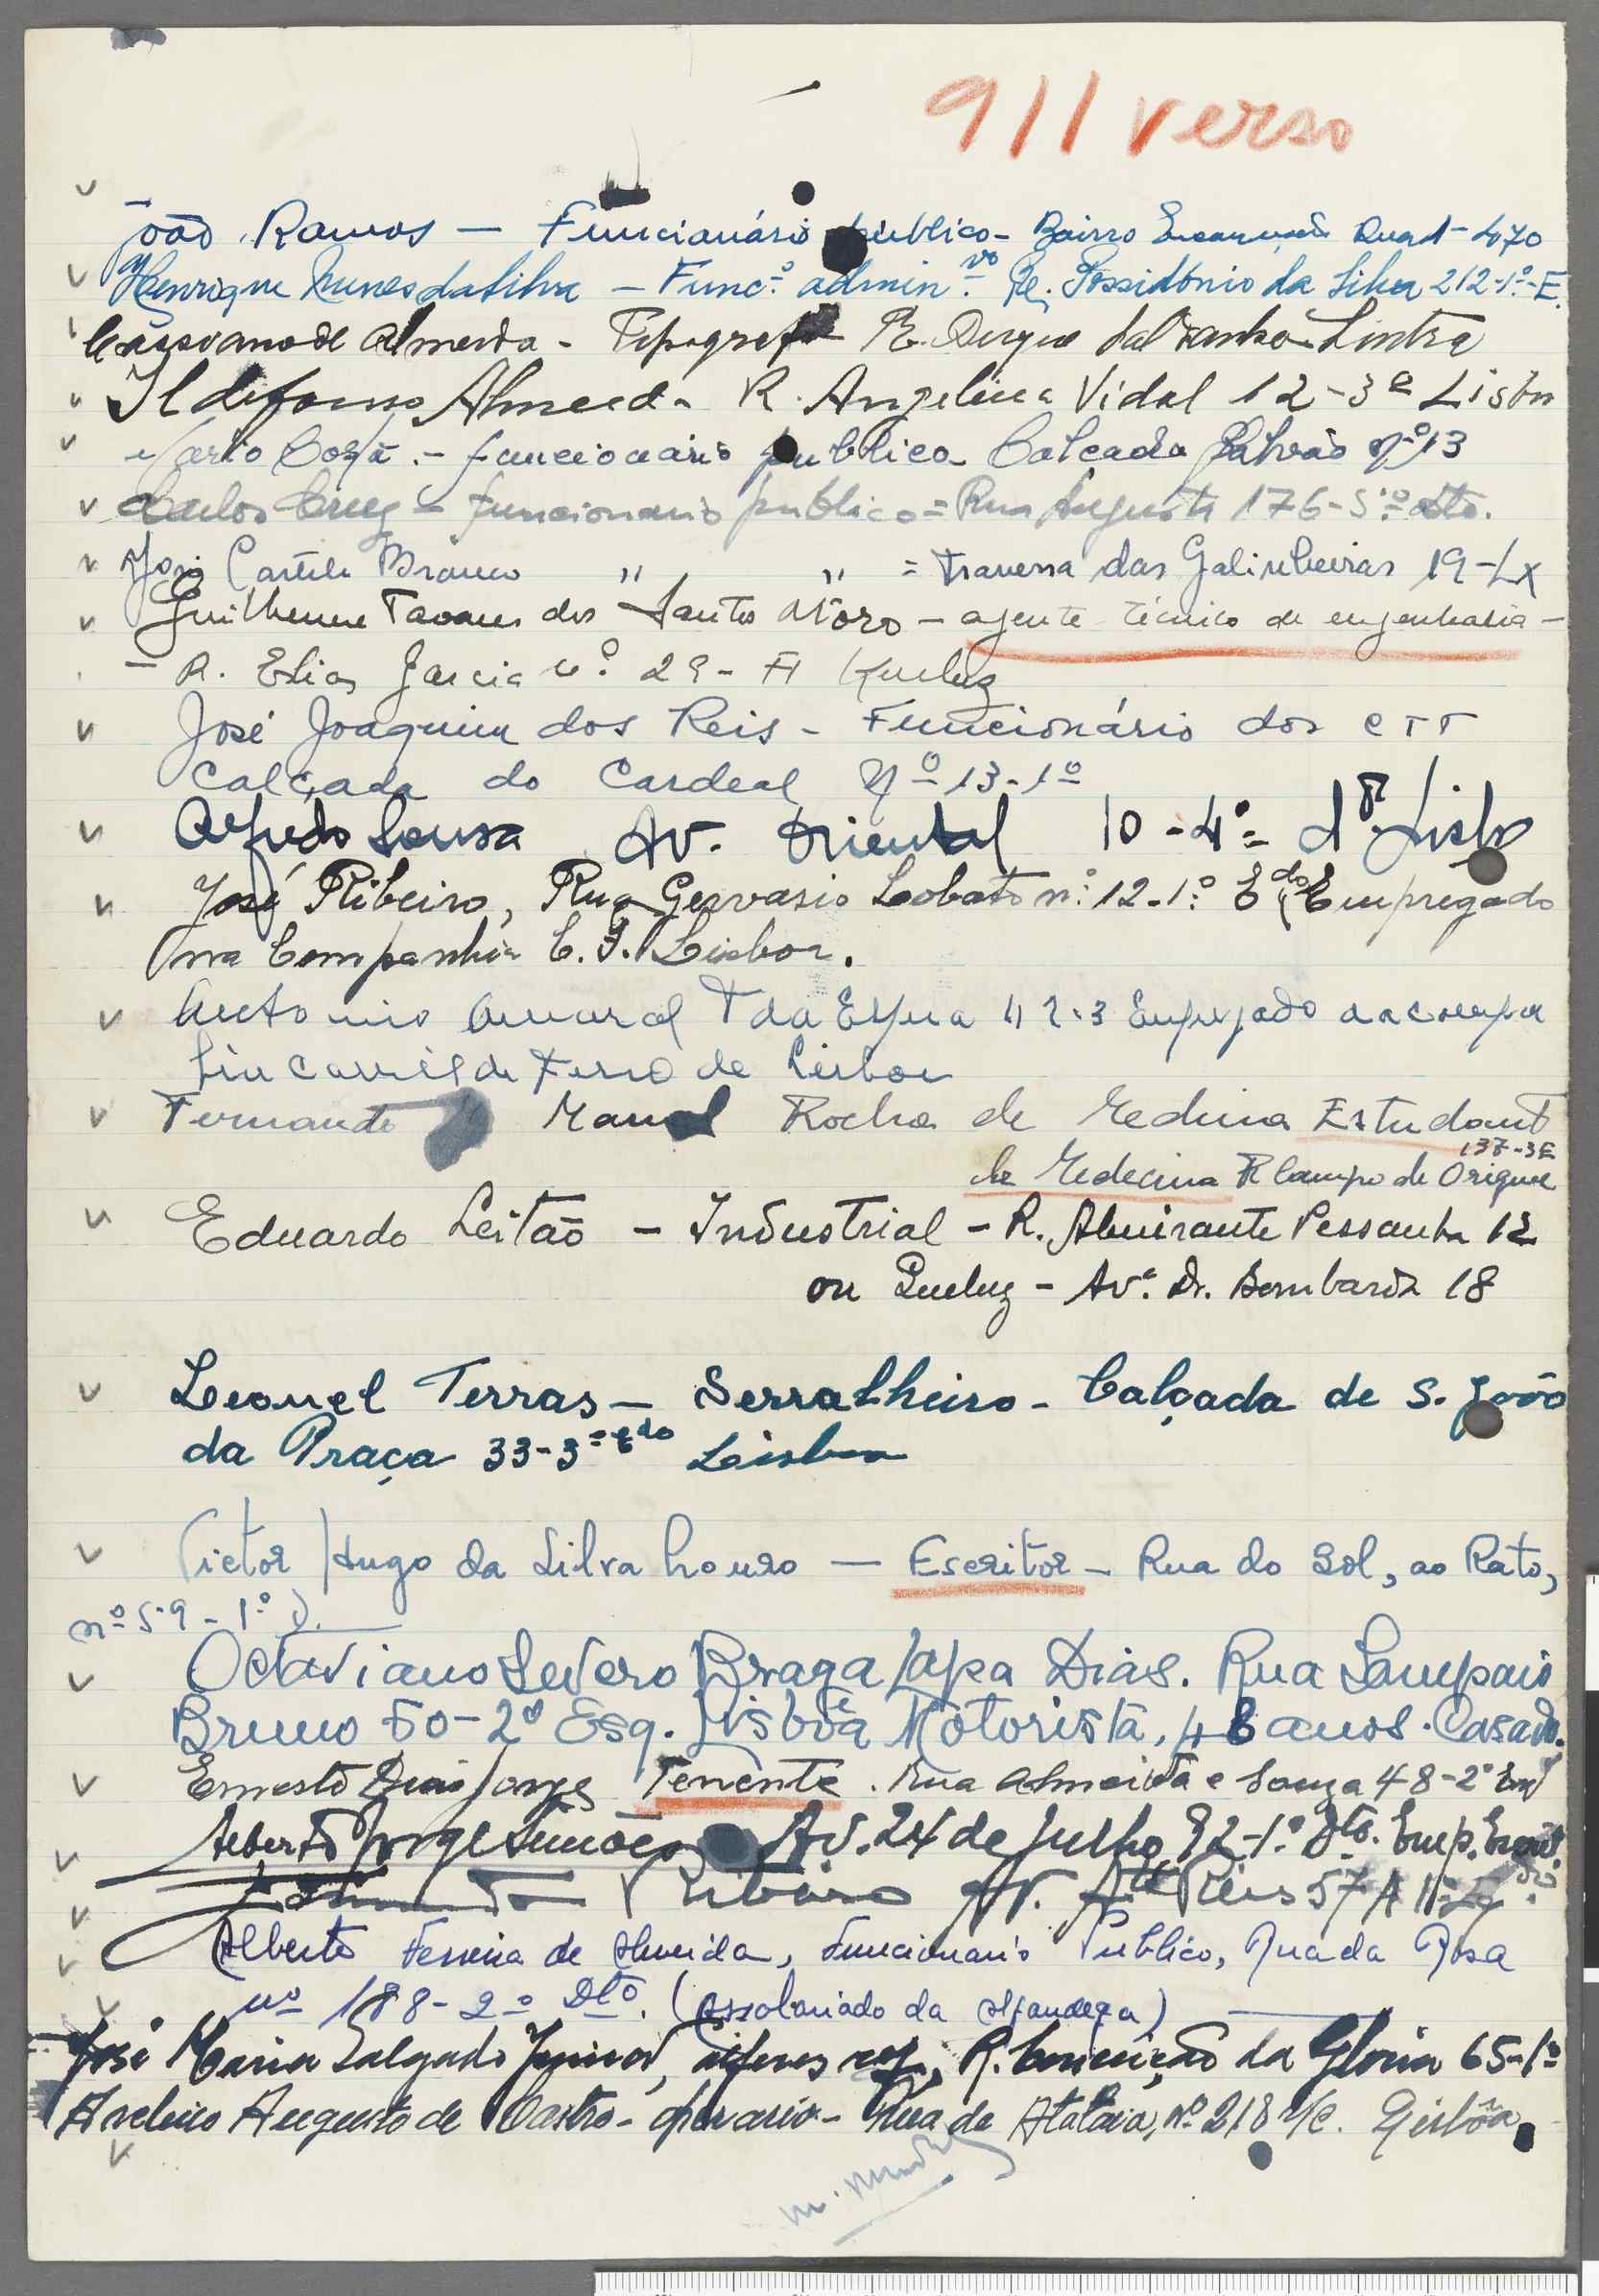 911 verso
João Ramos — Funcionário público - Bairro Encarnação Rua 1 - 4070
Henrique Nunes da Silva — Func.º admin.vo R. Possidónio da Silva 212-1º-E.
de Almeida - Tipografo R. Duque Saldanha Sintra
Ildefonso Almeida R. Angelina Vidal 12-3º Lisboa
Mario Costa - funcionário publico Calçada Galvão nº 13
Carlos Cruz - funcionario publico = Rua Augusta 176-5º dto.
José Castelo Branco " " = Travessa das Galinheiras 19-Lx
Guilherme Tavares dos Santos — agente técnico de engenharia —
— R. Elias Garcia nº 29 - Queluz
José Joaquim dos Reis - Funcionário dos CTT
Calçada do Cardeal Nº 13-1º
Alfredo Sousa Av. Oriental 10-4º dº Lisboa
José Ribeiro, Rua Gervasio Lobato nº 12-1º Edo (Empregado
na Companhia C. F. Lisboa.
Antonio Amaral T da 3 Empregado na
Carris de Ferro de Lisboa
Fernando Manuel Rocha de Medina Estudant
137-3E
de Medecina R Campo de Ourique
Eduardo Leitão - Industrial - R. Almirante Pessanha 12
ou Queluz - Avª. Dr. Bombarda 18
Leonel Terras — Serralheiro - Calçada de S. João
da Praça 33-3º Edo Lisboa
Victor Hugo da Silva Louro — Escritor - Rua do Sol, ao Rato,
nº 59 - 1º D.
Octaviano Severo Braga Lapa Dias. Rua Sampaio
Bruno 50-2º Esq. Lisboa Motorista, 48 anos. Casado.
Ernesto Dias Jorge Tenente. Rua Almeida e Sousa 48-2º
Alberto Jorge Simões Av. 24 de Julho, 92-1º Dto. Emp. Escrit.
Ribeiro Av. Reis 57 A
Alberto Ferreira de Almeida, Funcionario Publico, Rua da Rosa
nº 188-2º Dto. (Assalariado da Alfandega)
José Maria Salgado Junior, alferes ref., R. Conceição da Gloria 65-1º
Avelino Augusto de Castro - operario - Rua da Atalaia, nº 218 r/c. Lisbôa.